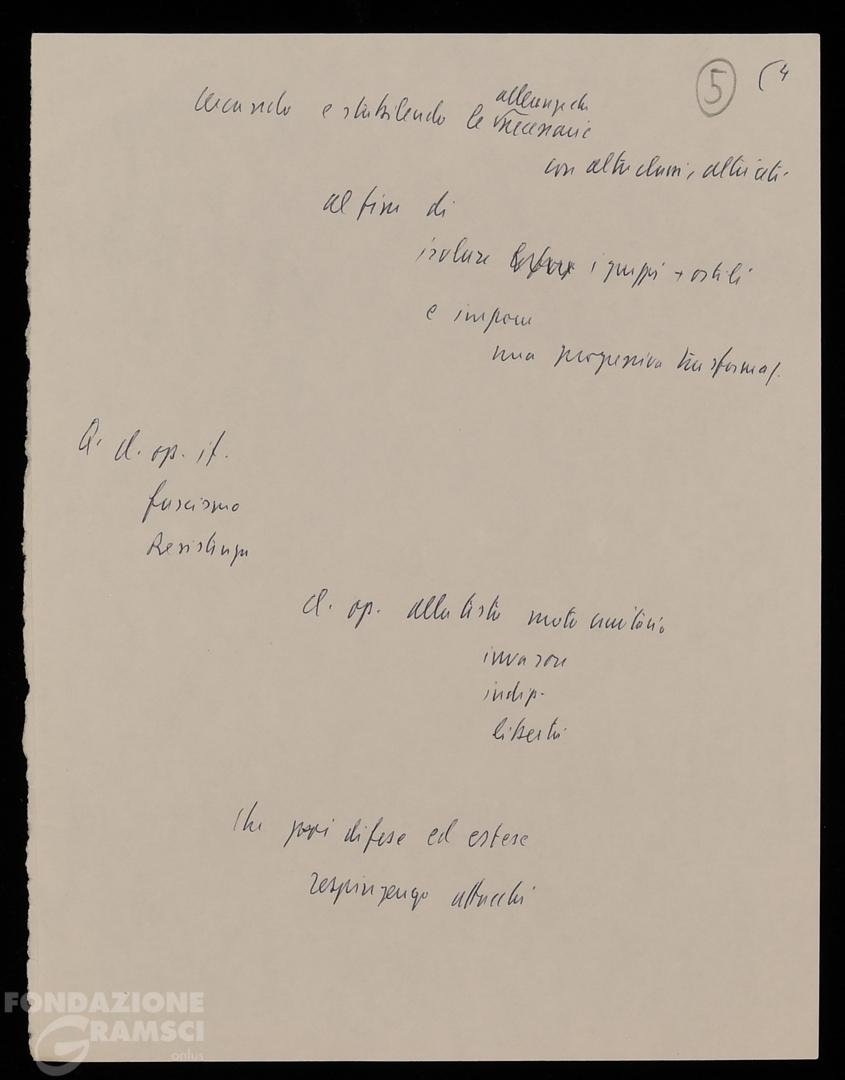 5 (4
cercando e stabilendo le alleanze necessarie
con altre classi, altri ceti
al fine di
isolare i gruppi + ostili
e imporre
una progressiva trasformaz.
Q. cl. op. it.
fascismo
Resistenza
cl. op. alla testa moto unitario
invasore
indip.
libertà
che poi difese ed estese
respingengo attacchi
FONDAZIONE
GRAMSCI
onlus